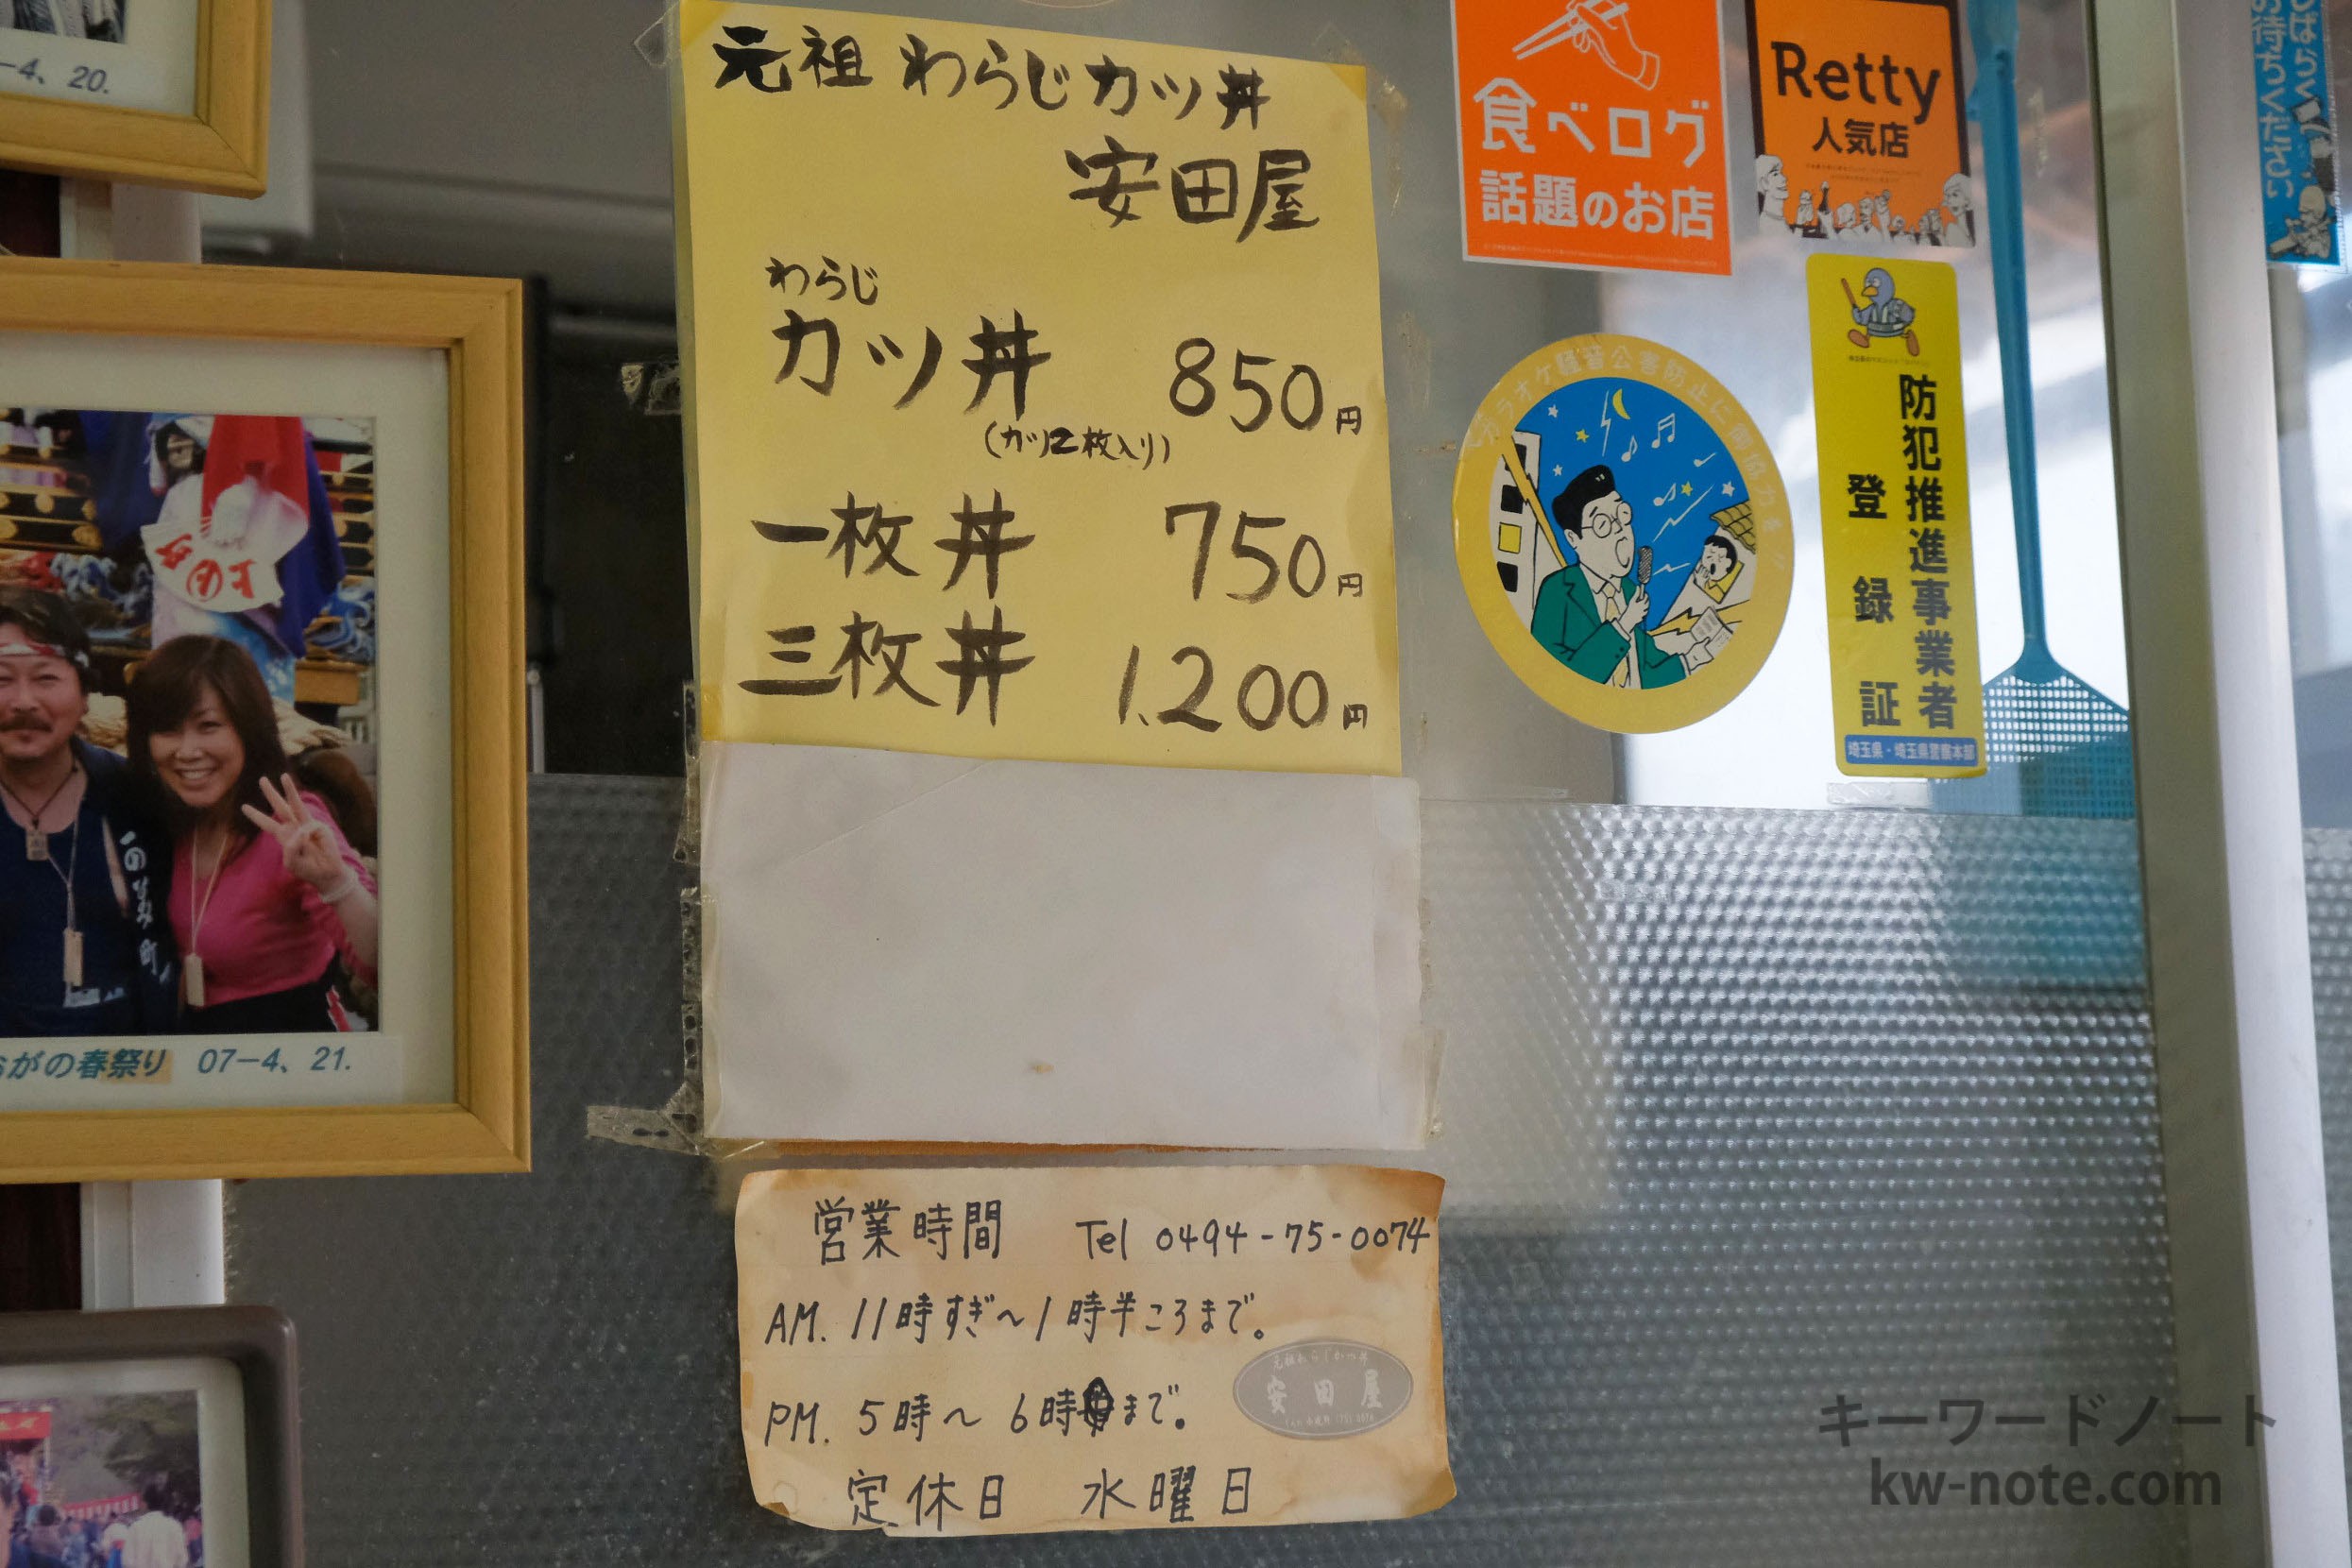 元祖 わらじカツ丼
安田屋
わらじ
カツ丼 850円
(カツ2枚入り)
一枚丼 750円
三枚丼 1.200円
営業時間 Tel 0494-75-0074
AM. 11時すぎ〜1時半ころまで。
PM. 5時〜6時まで。
定休日 水曜日
元祖わらじかつ丼
安田屋
食べログ
話題のお店
Retty
人気店
カラオケ騒音公害防止に御協力を
防犯推進事業者
登録証
埼玉県・埼玉県警察本部
しばらく
お待ちください
-4、20.
がの春祭り 07-4、21.
キーワードノート
kw-note.com